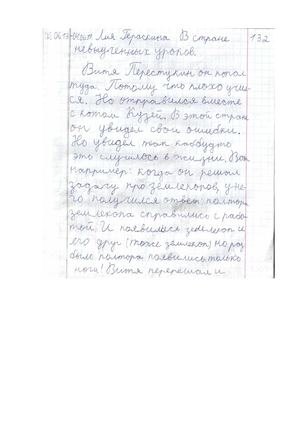 Лия Гераскина В стране 132
невыученных уроков.
Витя Перестукин он попал
туда. Потому что плохо учил-
ся. Но отправился вместе
с котом Кузей. В этой стране
он увидел свои ошибки.
Но увидел так какбудто
это случилось в жизни. Вот
например: когда он решал
задачу про землекопов, у не-
го получился ответ полтора
землекопа справились с рабо-
той. И появились землекоп и
его друг (тоже землекоп) но раз
было полтора появились только
ноги! Витя перерешал и